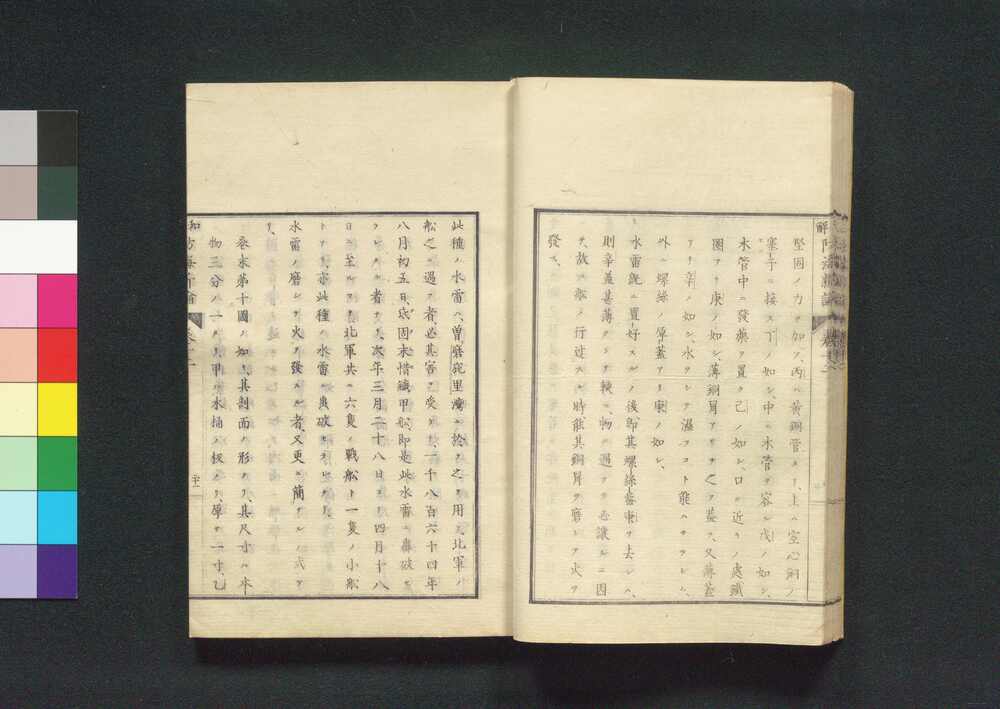 堅固ノ力ヲ加フ、丙ハ黄銅管ナリ、上ハ空心銅ノ
塞子ニ接ス丁ノ如シ、中ニ木管ヲ容ル戊ノ如シ、
木管中ニ發藥ヲ置ク己ノ如シ、口ニ近キノ處鐵
圈アリ庚ノ如シ、薄銅冐アリテ之ヲ蓋ス、又薄蓋
アリ辛ノ如シ、水ヲシテ濕スコト能ハサラシム、
外ニ螺絲ノ厚蓋アリ庚ノ如シ、
水雷既ニ置キ好スルノ後即其螺絲蓋庚ヲ去レハ、
則辛蓋甚薄クシテ軟ニ、物ノ過クル壱讓ルニ因
テ、故ニ船ノ行過スル時能其銅冐ヲ磨シテ火ヲ
發ス、
此種ノ水雷ハ、曽磨窕里灣ニ於テ之ヲ用フ、北軍ノ
船之ヲ過ル者、必其害ヲ受ク、一千八百六十四年
八月初五日、底固末惜鐵甲船、即是此水雷ニ轟破セ
ラレタル者ナリ、次年三月二十八日ヨリ四月十八
日ニ至ルマテ、北軍共ニ六隻ノ戰船ト一隻ノ小船
トアリ、亦此種ノ水雷ニ轟破セラレタリ、
水雷ノ磨シテ火ヲ發スル者、又更ニ簡ナルノ式ア
リ、
卷末第十圖ノ如シ、其剖面ノ形ナリ、其尺寸ハ本
物三分ノ一ナリ、甲ハ水桶ノ板ナリ、厚サ一寸、乙